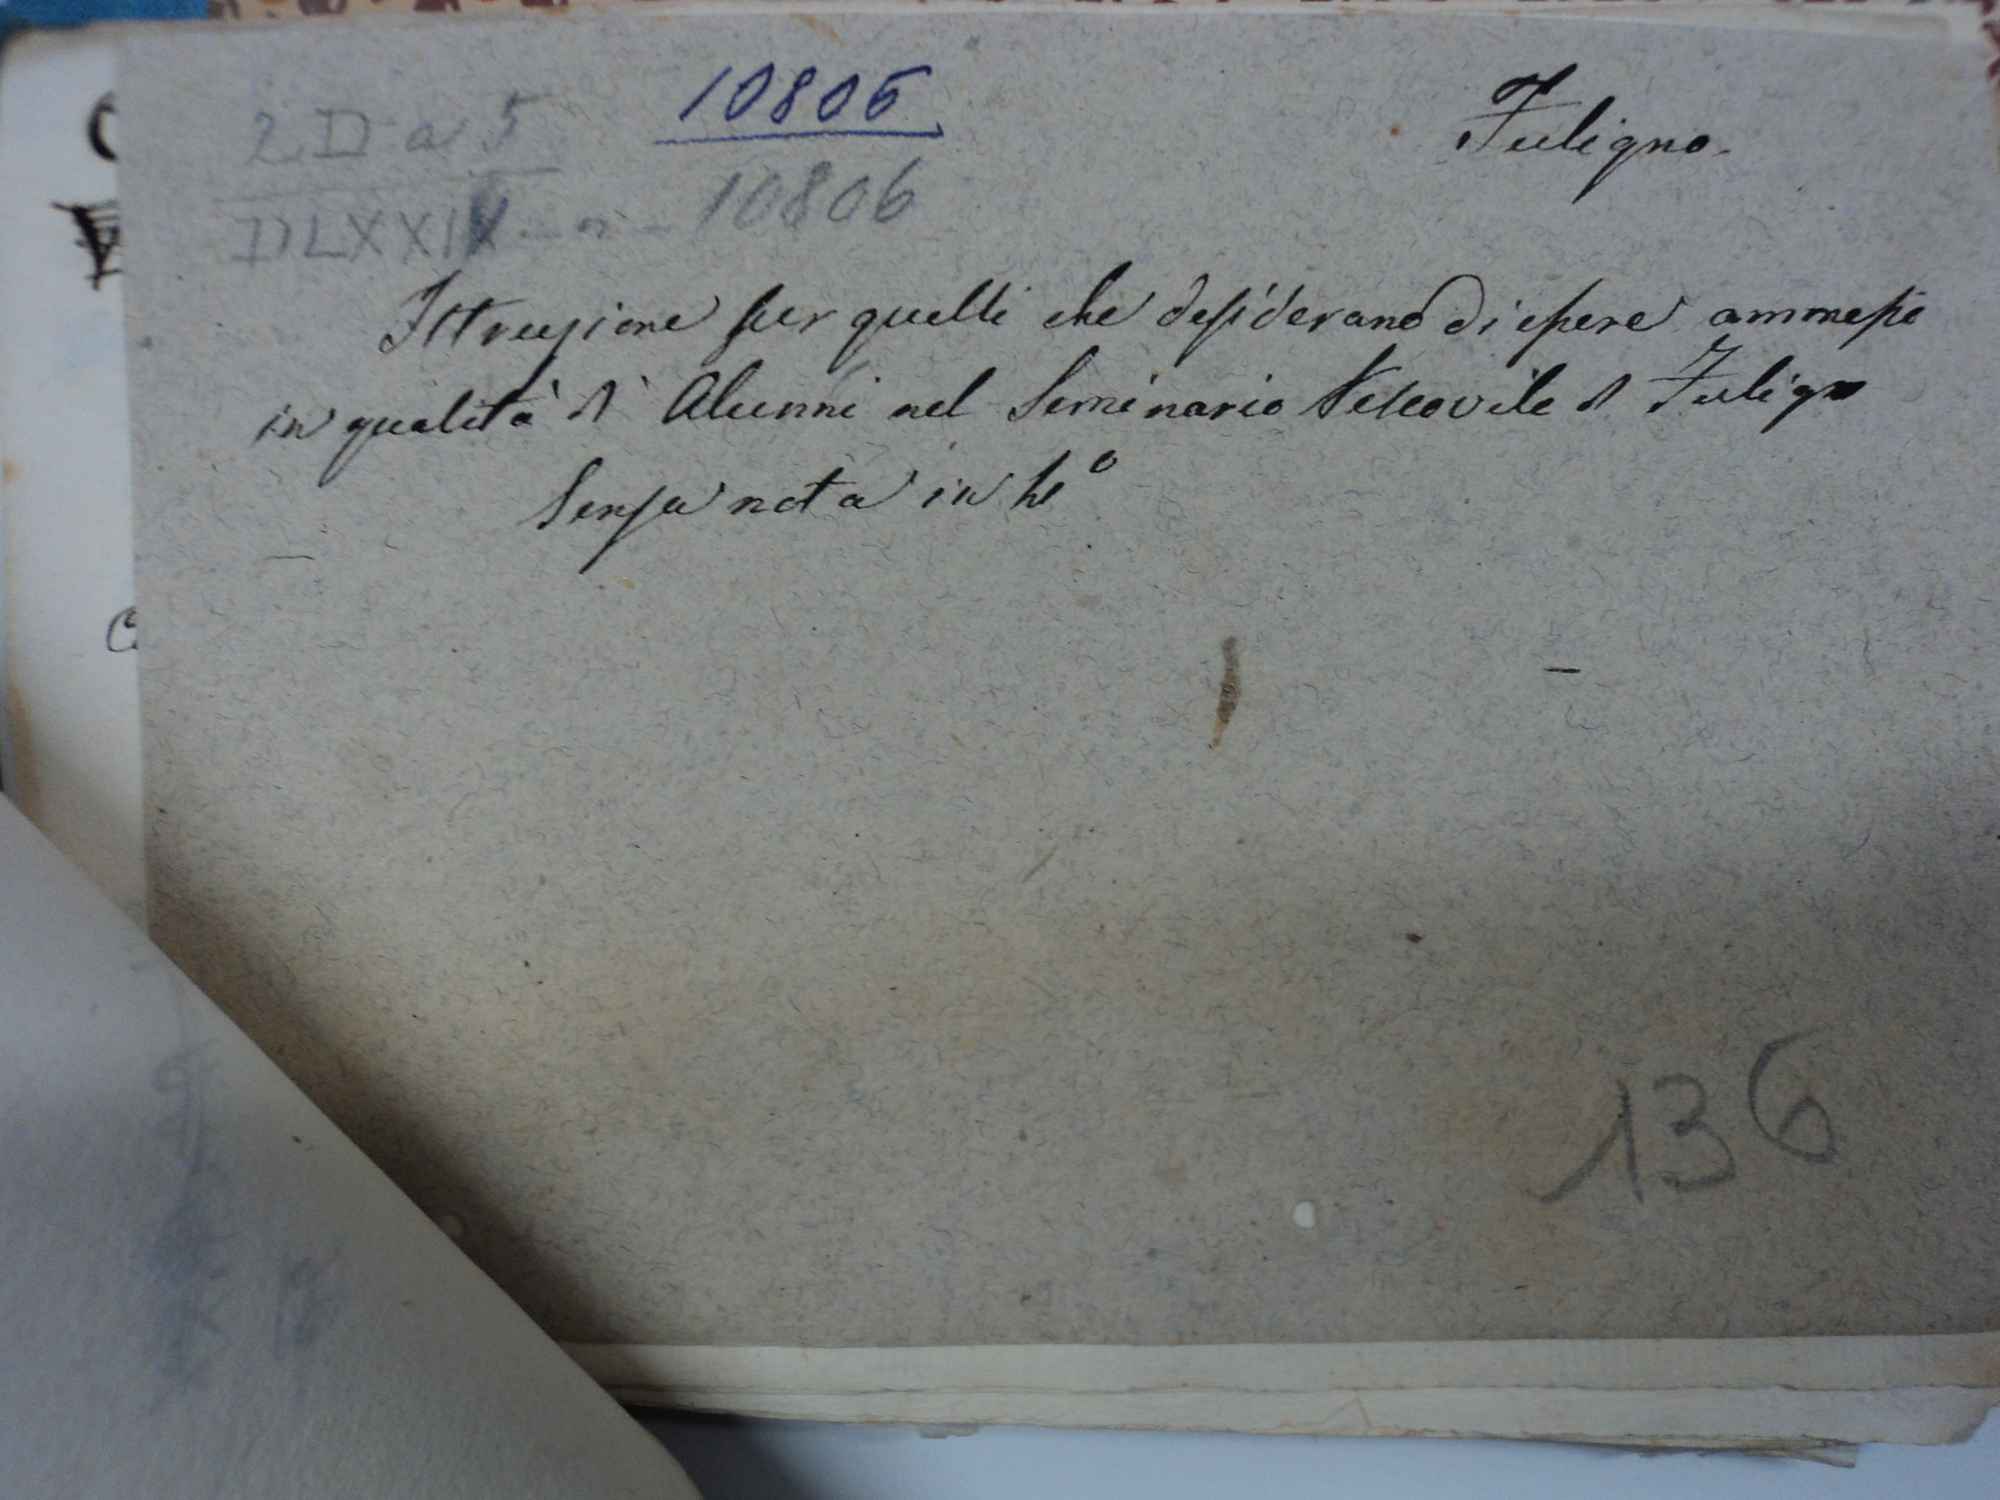 2 D a 5
10806
Fuligno.
DLXXIX - n - 10806
Istruzione per quelli che desiderano di essere ammessi
in qualità di Alunni nel Seminario Vescovile di Fuligno
Senza nota in
136